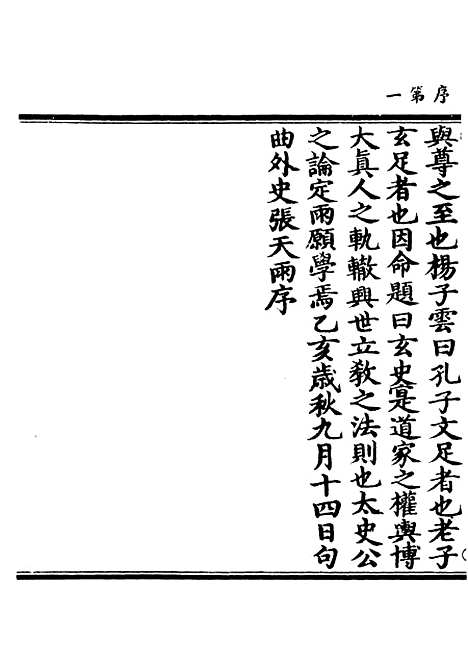 序第一
與尊之至也楊子雲曰孔子文足者也老子
玄足者也因命題曰玄史寔是道家之權輿博
大眞人之軌轍興世立教之法則也太史公
之論定雨願學焉乙亥歲秋九月十四日句
曲外史張天雨序